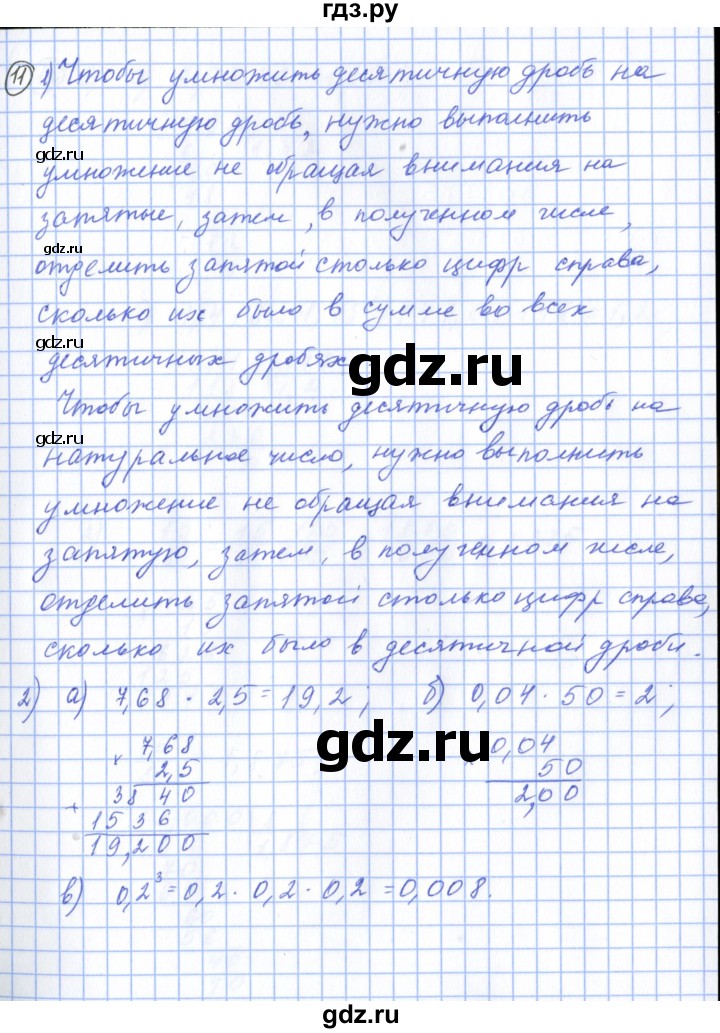 гдз.ру
11 1) Чтобы умножить десятичную дробь на
десятичную дробь, нужно выполнить
gdz.ru
умножение не обращая внимания на
запятые, затем, в полученном числе,
gdz.ru
отделить запятой столько цифр справа,
сколько их было в сумме во всех
gdz.ru
десятичных дробях.
gdz.ru
Чтобы умножить десятичную дробь на
gdz.ru
натуральное число, нужно выполнить
умножение не обращая внимания на
запятую, затем, в полученном числе,
отделить запятой столько цифр справа,
сколько их было в десятичной дроби.
2) а) 7,68 · 2,5 = 19,2; б) 0,04 · 50 = 2;
gdz.ru
× 7,68
2,5
+ 38 40
15 36
19,200
× 0,04
50
2,00
в) 0,2³ = 0,2 · 0,2 · 0,2 = 0,008.
gdz.ru